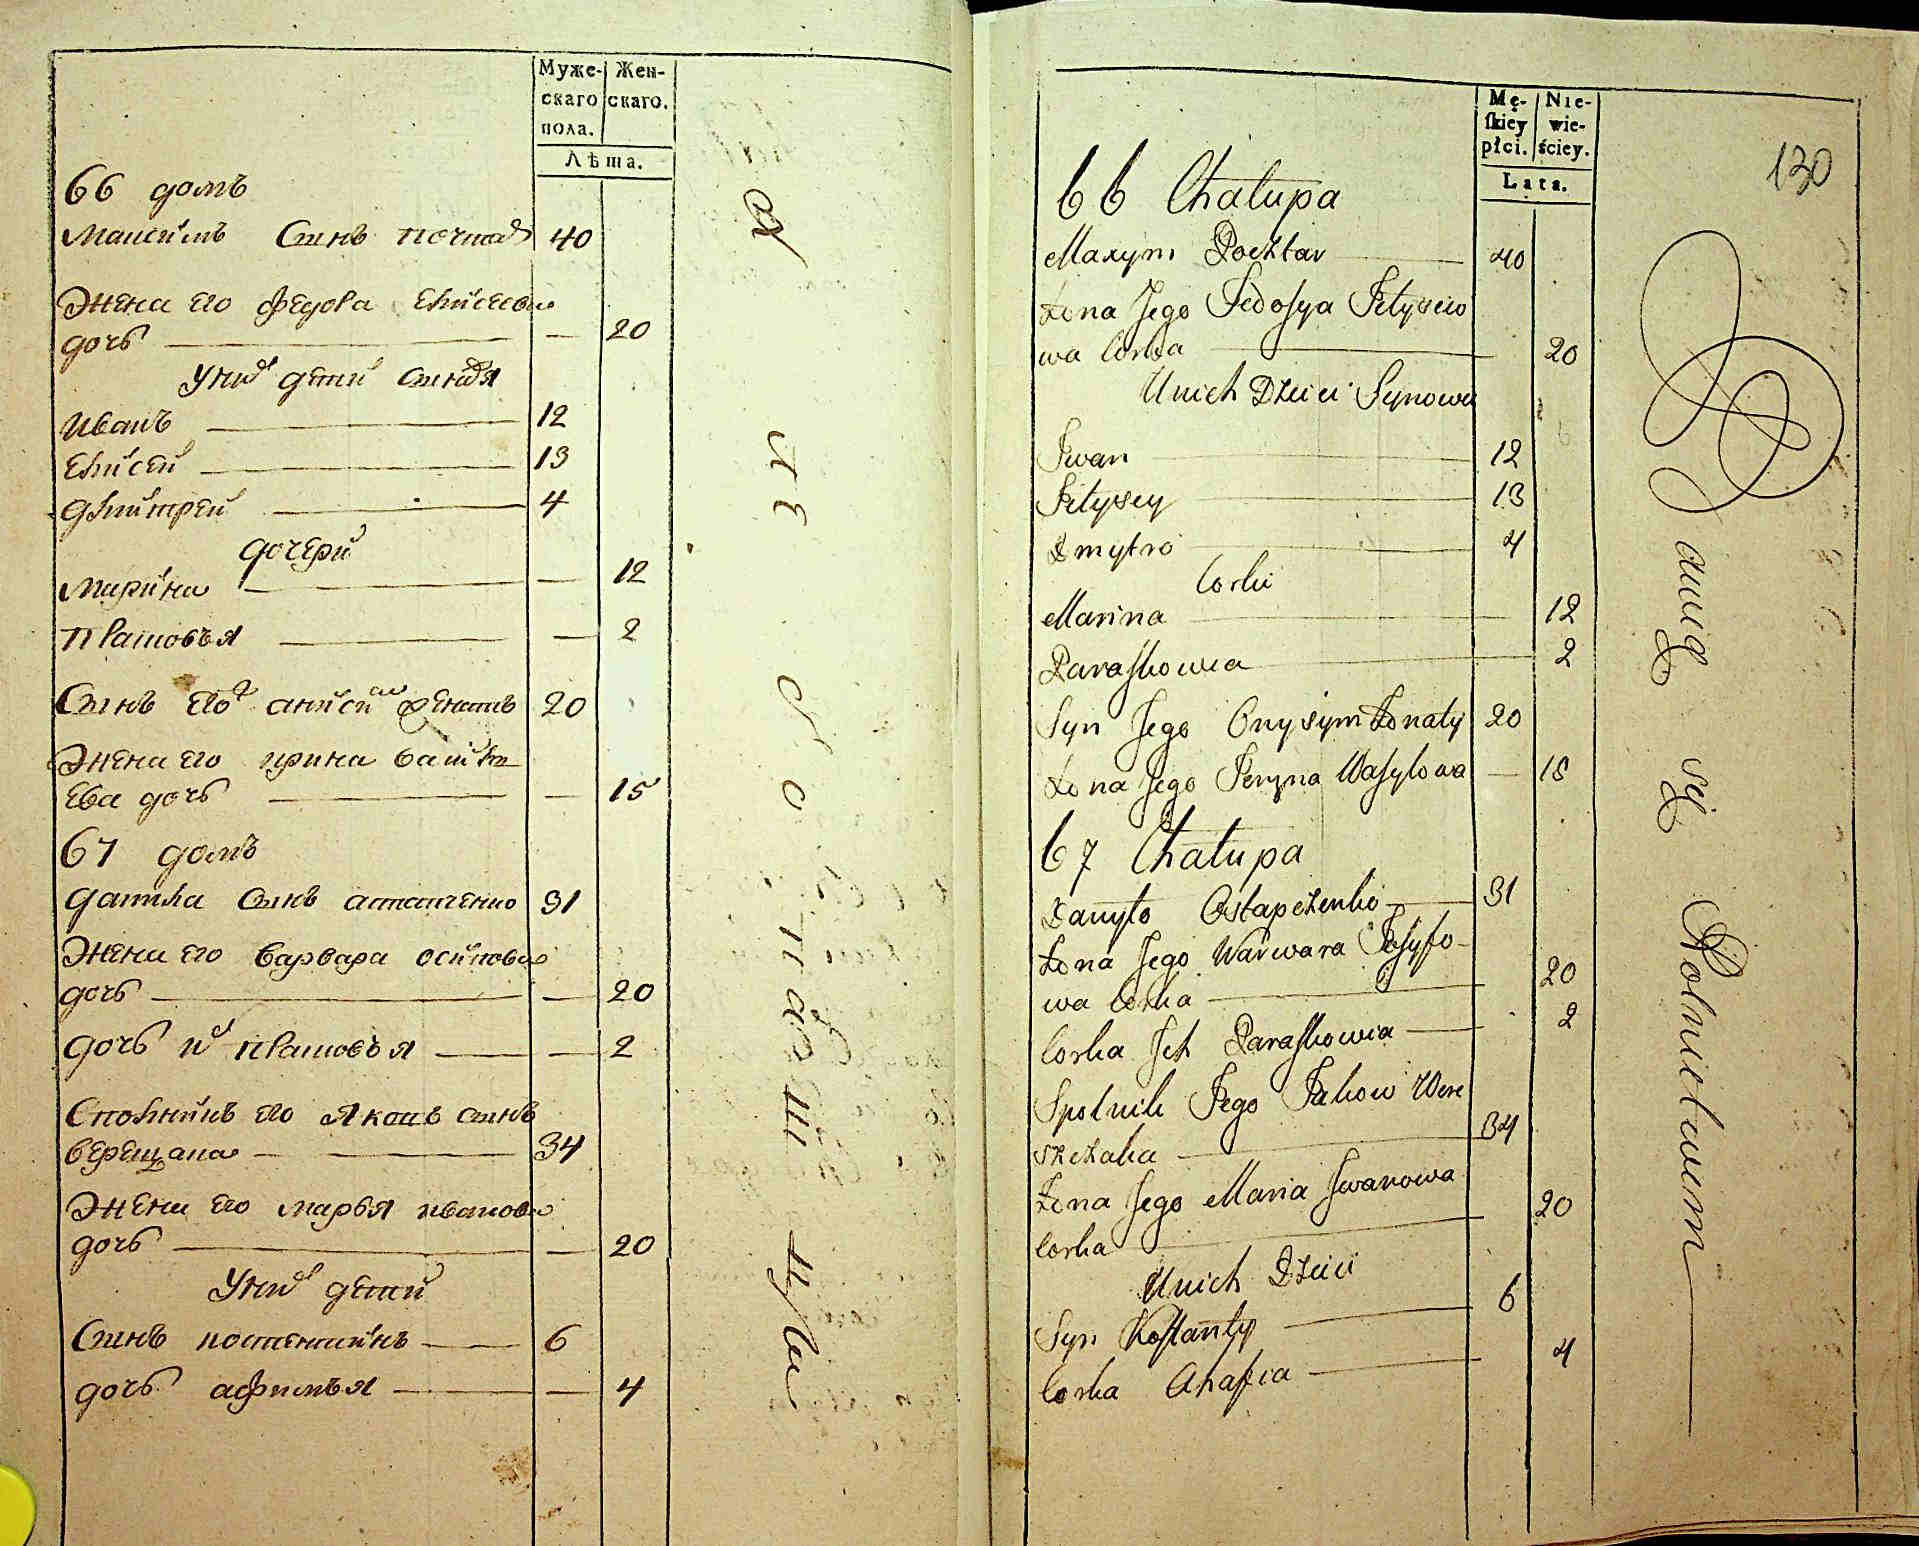 Муже-
скаго
пола.
Жен-
скаго.
Лѣта.
66 домъ
Максимъ Сынъ почтар 40
Жена его Федора Елисеева
дочь — 20
У них дети Сыновя
Иванъ 12
Елисей 13
Дмитрей 4
дочери
Марина — 12
Прасковья — 2
Сынъ его анисим женатъ 20
Жена его ирина василь
ева дочь — 15
67 домъ
данила сынъ астапченко 31
Жена его варвара осипова
дочь — 20
дочь их Прасковья — 2
Сполникъ его Яковъ сынъ
верещака 34
Жена его марья иванова
дочь — 20
У них дети
Сынъ костентинъ 6
дочь афимья — 4
Mę-
skiey
płci.
Nie-
wie-
ściey.
Lata.
130
66 Chałupa
Maxym Pocztar 40
Żona Jego Fedosya Jełysieio
wa Corka 20
U nich Dzieci Synowie
Jwan 12
Jełysey 13
Dmytro 4
Corki
Marina 12
Paraskowia 2
Syn Jego Onysym Żonaty 20
Żona Jego Jeryna Wasylowa — 15
67 Chałupa
Danyło Ostapczenko 31
Żona Jego Warwara Josyfo-
wa Corka 20
Corka Jch Paraskowia 2
Spolnik Jego Jakow Were
szczaka 34
Żona Jego Maria Jwanowa
Corka 20
U nich Dzieci
Syn Kostanty 6
Corka Ahafia 4